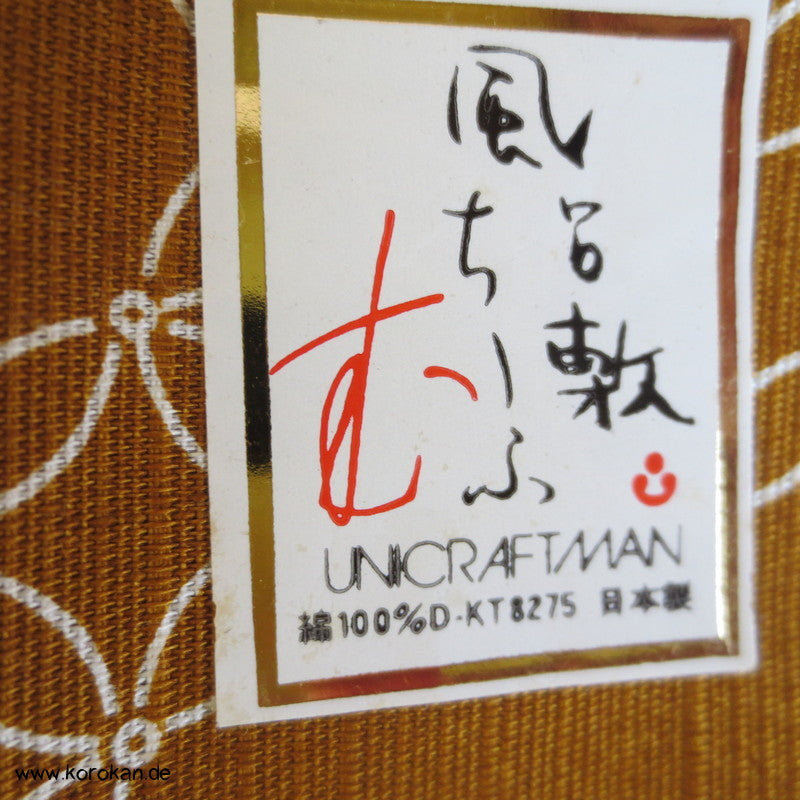 風呂敷
ちーふ
む
UNICRAFTMAN
綿100%D-KT8275 日本製
www.korokan.de